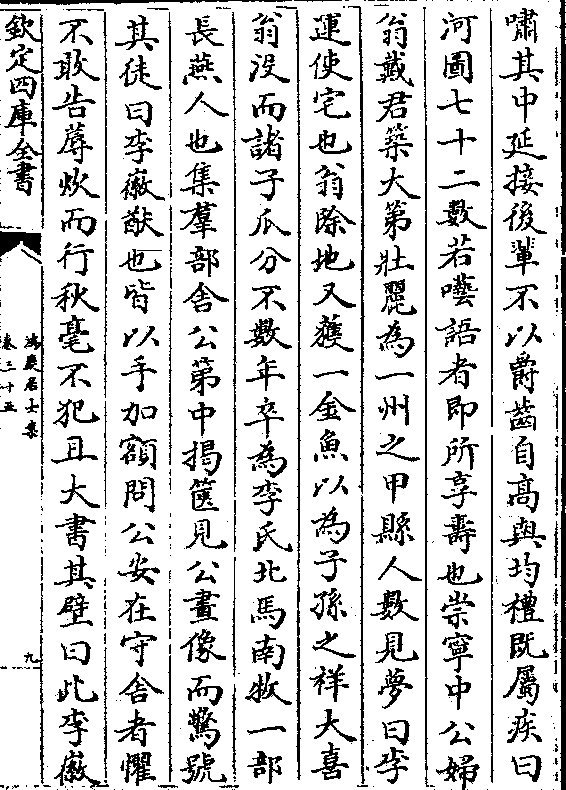 嘯其中延接後輩不以爵齒自高與均禮既屬疾曰
河圖七十二數若囈語者即所享壽也崇寧中公婦
翁戴君築大第壯麗為一州之甲縣人數見夢曰李
運使宅也翁除地又獲一金魚以為子孫之祥大喜
翁没而諸子瓜分不數年卒為李氏北馬南牧一部
長燕人也集羣部舍公第中揭篋見公畫像而驚號
其徒曰李徽猷也皆以手加額問公安在守舍者懼
不敢告蓐炊而行秋毫不犯且大書其壁曰此李徽
欽定四庫全書
鴻慶居士集
卷三十五
九